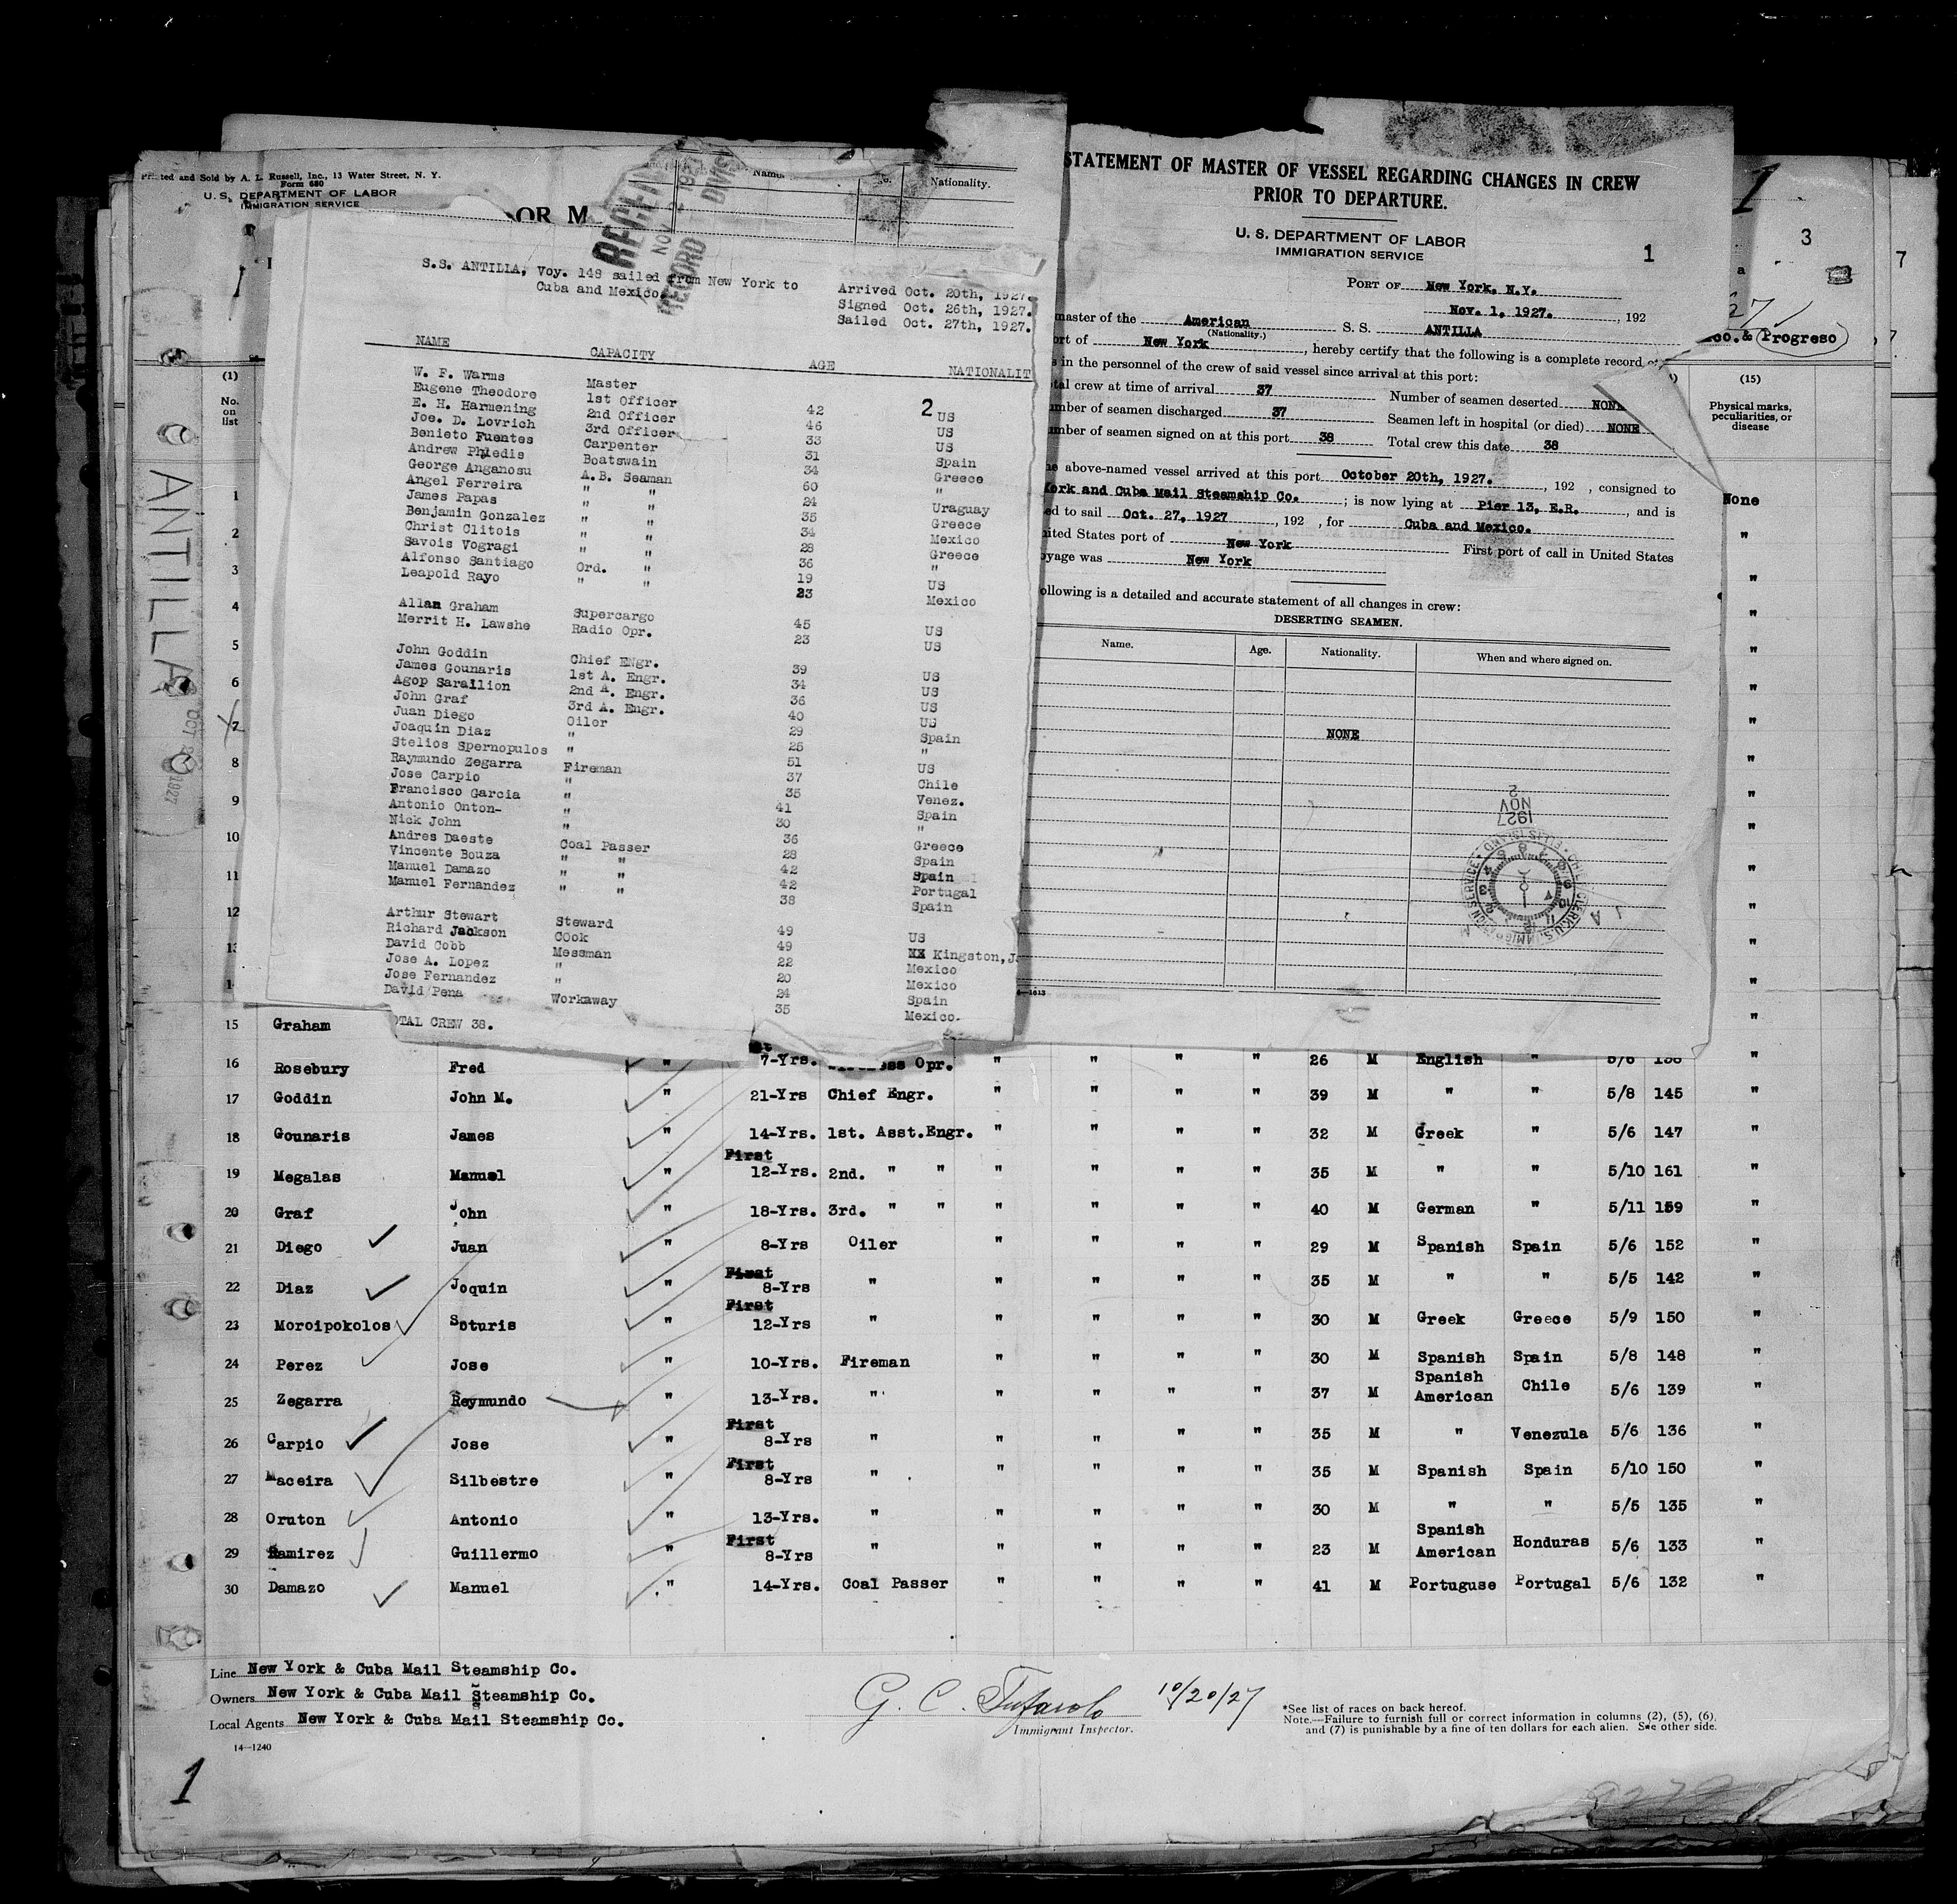 Printed and Sold by A. L. Russell, Inc., 13 Water Street, N. Y.
Form 680
U. S. DEPARTMENT OF LABOR
IMMIGRATION SERVICE
Nationality.
RECEIV
NOV 2 192
RECORD DIVIS
S.S. ANTILIA, Voy. 148 sailed from New York to
Cuba and Mexico.
Arrived Oct. 20th, 1927.
Signed Oct. 26th, 1927.
Sailed Oct. 27th, 1927.
NAME CAPACITY AGE NATIONALIT
2
W. F. Warms Master 42 US
Eugene Theodore 1st Officer 46 US
E. H. Harmening 2nd Officer 33 US
Joe. D. Lovrich 3rd Officer 31 Spain
Benieto Fuentes Carpenter 34 Greece
Andrew Phledis Boatswain 60 "
George Anganosu A.B. Seaman 24 Uruguay
Angel Ferreira " " 35 Greece
James Papas " " 34 Mexico
Benjamin Gonzalez " " 28 Greece
Christ Clitois " " 36 "
Savois Vogragi " " 19 US
Alfonso Santiago Ord. " 23 Mexico
Leapold Rayo " "
Allan Graham Supercargo 45 US
Merrit H. Lawshe Radio Opr. 23 US
John Goddin Chief ENgr. 39 US
James Gounaris 1st A. Engr. 34 US
Agop Sarallion 2nd A. Engr. 36 US
John Graf 3rd A. Engr. 40 US
Juan Diego Oiler 29 Spain
Joaquin Diaz " 25 "
Stelios Spernopulos " 51 US
Raymundo Zegarra Fireman 37 Chile
Jose Carpio " 35 Venez.
Francisco Garcia " 41 Spain
Antonio Onton- " 30 "
Nick John " 36 Greece
Andres Daeste Coal Passer 28 Spain
Vincente Bouza " " 42 Spain
Manuel Damazo " " 42 Portugal
Manuel Fernandez " " 38 Spain
Arthur Stewart Steward 49 US
Richard Jackson COok 49 Kingston, J.
David Cobb Messman 22 Mexico
Jose A. Lopez " 20 Mexico
Jose Fernandez " 24 Spain
David Pena Workaway 35 Mexico.
OTAL CREW 38.
STATEMENT OF MASTER OF VESSEL REGARDING CHANGES IN CREW
PRIOR TO DEPARTURE.
U. S. DEPARTMENT OF LABOR
IMMIGRATION SERVICE
1
PORT OF New York, N.Y.
Nov. 1, 1927. , 192
master of the American S. S. ANTILLA
(Nationality.)
ort of New York , hereby certify that the following is a complete record of
s in the personnel of the crew of said vessel since arrival at this port:
tal crew at time of arrival 37 Number of seamen deserted NONE
umber of seamen discharged 37 Seamen left in hospital (or died) NONE
umber of seamen signed on at this port 38 Total crew this date 38
he above-named vessel arrived at this port October 20th, 1927. , 192 , consigned to
York and Cuba Mail Steamship Co. ; is now lying at Pier 13, E.R. , and is
ed to sail Oct. 27, 1927 , 192 , for Cuba and Mexico.
nited States port of New York First port of call in United States
oyage was New York
ollowing is a detailed and accurate statement of all changes in crew:
DESERTING SEAMEN.
Name. Age. Nationality. When and where signed on.
NONE
1927
NOV
2
1
3
7
co. & Progreso
(1)
No.
on
list
(15)
Physical marks,
peculiarities, or
disease
ANTILLA
OCT 20 1927
1 None
2 "
3 "
4 "
5 "
6 "
7 "
8 "
9 "
10 "
11 "
12 "
13 "
14 "
15 Graham "
16 Rosebury Fred " 7-Yrs. Opr. " " " " 26 M English " 5/6 138 "
17 Goddin John M. " 21-Yrs Chief Engr. " " " " 39 M " " 5/8 145 "
18 Gounaris James " 14-Yrs. 1st. Asst.Engr. " " " " 32 M Greek " 5/6 147 "
19 Megalas Manuel " First 12-Yrs. 2nd. " " " " " " 35 M " " 5/10 161 "
20 Graf John " 18-Yrs. 3rd. " " " " " " 40 M German " 5/11 159 "
21 Diego Juan " 8-Yrs Oiler " " " " 29 M Spanish Spain 5/6 152 "
22 Diaz Joquin " First 8-Yrs " " " " " 35 M " " 5/5 142 "
23 Moroipokolos Soturis " First 12-Yrs " " " " " 30 M Greek Greece 5/9 150 "
24 Perez Jose " 10-Yrs. Fireman " " " " 30 M Spanish Spain 5/8 148 "
25 Zegarra Raymundo " 13-Yrs. " " " " " 37 M Spanish American Chile 5/6 139 "
26 Carpio Jose " First 8-Yrs " " " " " 35 M " Venezula 5/6 136 "
27 Maceira Silbestre " First 8-Yrs " " " " " 35 M Spanish Spain 5/10 150 "
28 Oruton Antonio " 13-Yrs. " " " " " 30 M " " 5/5 135 "
29 Ramirez Guillermo " First 8-Yrs " " " " " 23 M Spanish American Honduras 5/6 133 "
30 Damazo Manuel " 14-Yrs. Coal Passer " " " " 41 M Portuguse Portugal 5/6 132 "
Line New York & Cuba Mail Steamship Co.
Owners New York & Cuba Mail Steamship Co.
Local Agents New York & Cuba Mail Steamship Co.
14—1240
G. C. Tufarolo 10/20/27
Immigrant Inspector.
*See list of races on back hereof.
Note.—Failure to furnish full or correct information in columns (2), (5), (6),
and (7) is punishable by a fine of ten dollars for each alien. See other side.
1